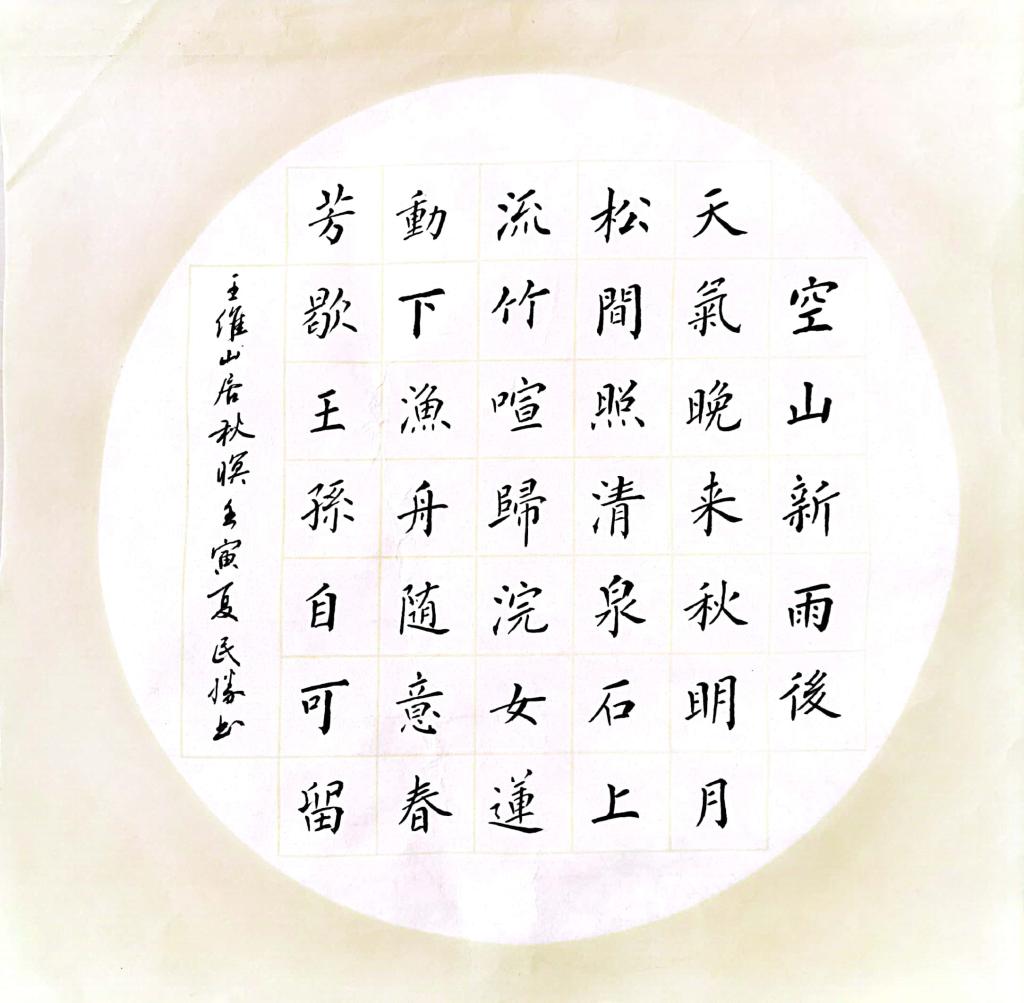 空山新雨後
天氣晚来秋明月
松間照清泉石上
流竹喧歸浣女蓮
動下漁舟随意春
芳歇王孫自可留
王維山居秋暝壬寅夏民勝书